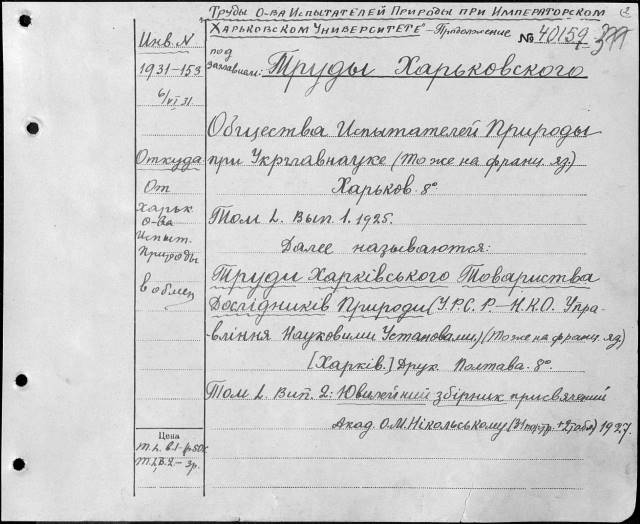 Труды О-ва Испытателей Природы при Императорском
Харьковском Университете - Продолжение
№ 40159
под заглавием: Труды Харьковского
Общества Испытателей Природы
при Укрглавнауке (То же на франц. яз)
Харьков 8°
Том L. Вып. 1. 1925.
Далее называются:
Труди Харківського Товариства
Дослідників Природи (У.Р.С.Р.-Н.К.О. Упра-
вління Науковими Установами) (То же на франц. яз)
[Харків.] Друк. Полтава. 8°.
Том L. Вип. 2: Ювилейний збірник присвячений
Акад. О.М. Нікольському (31 портр. + 2 табл) 1927.
Инв. N
1931-153
6/VI 31
Откуда
От
Харьк
О-ва
Испыт.
Природы
в обмен
Цена
т. L. в.1-р.50к
т. L, в.2-3р.